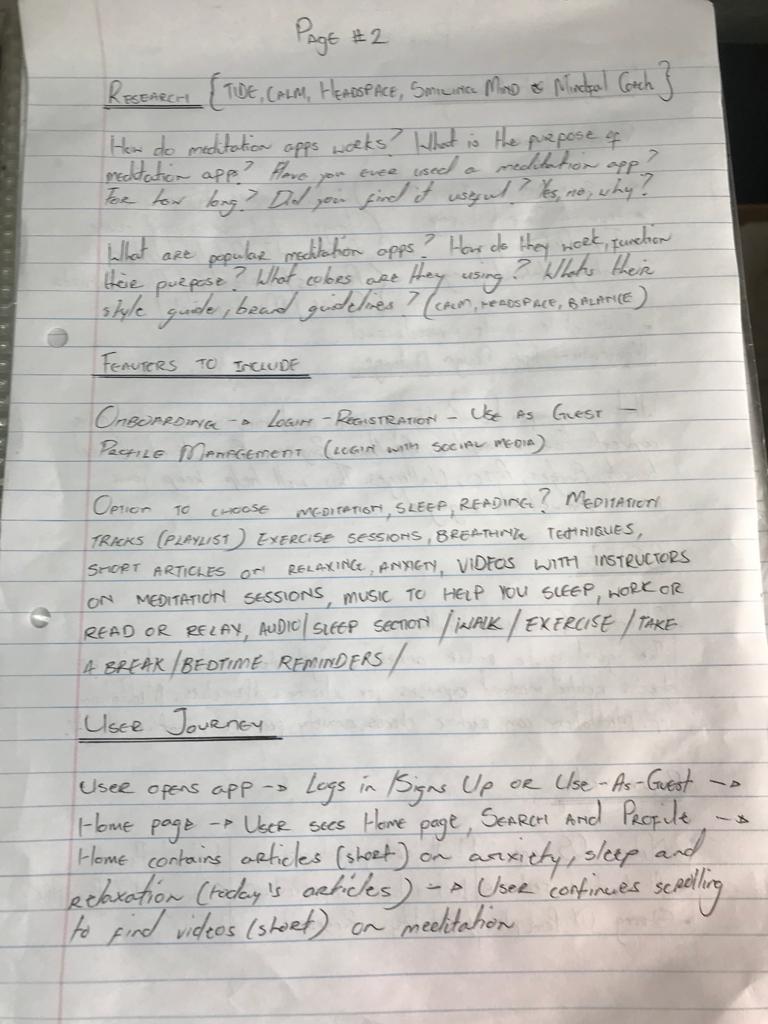 Page #2
RESEARCH {TIDE, CALM, HEADSPACE, SMILING MIND & Mindful Coach}
How do meditation apps works? What is the purpose of
meditation app? Have you ever used a meditation app?
For how long? Did you find it useful? Yes, no, why?
What are popular meditation apps? How do they work, function
their purpose? What colors are they using? Whats their
style guide, brand guidelines? (CALM, HEADSPACE, BALANCE)
FEAUTERS TO INCLUDE
ONBOARDING -> LOGIN - REGISTRATION - USE AS GUEST -
PROFILE MANAGEMENT (LOGIN WITH SOCIAL MEDIA)
OPTION TO CHOOSE MEDITATION, SLEEP, READING? MEDITATION
TRACKS (PLAYLIST) EXERCISE SESSIONS, BREATHING TECHNIQUES,
SHORT ARTICLES ON RELAXING, ANXIETY, VIDEOS WITH INSTRUCTORS
ON MEDITATION SESSIONS, MUSIC TO HELP YOU SLEEP, WORK OR
READ OR RELAX, AUDIO/SLEEP SECTION / WALK / EXERCISE / TAKE
A BREAK / BEDTIME REMINDERS /
USER JOURNEY
USER OPENS APP -> Logs in /Signs Up OR Use-As-Guest ->
Home page -> USER SEES Home page, SEARCH AND PROFILE ->
Home contains articles (short) on anxiety, sleep and
relaxation (today's articles) -> User continues scrolling
to find videos (short) on meditation